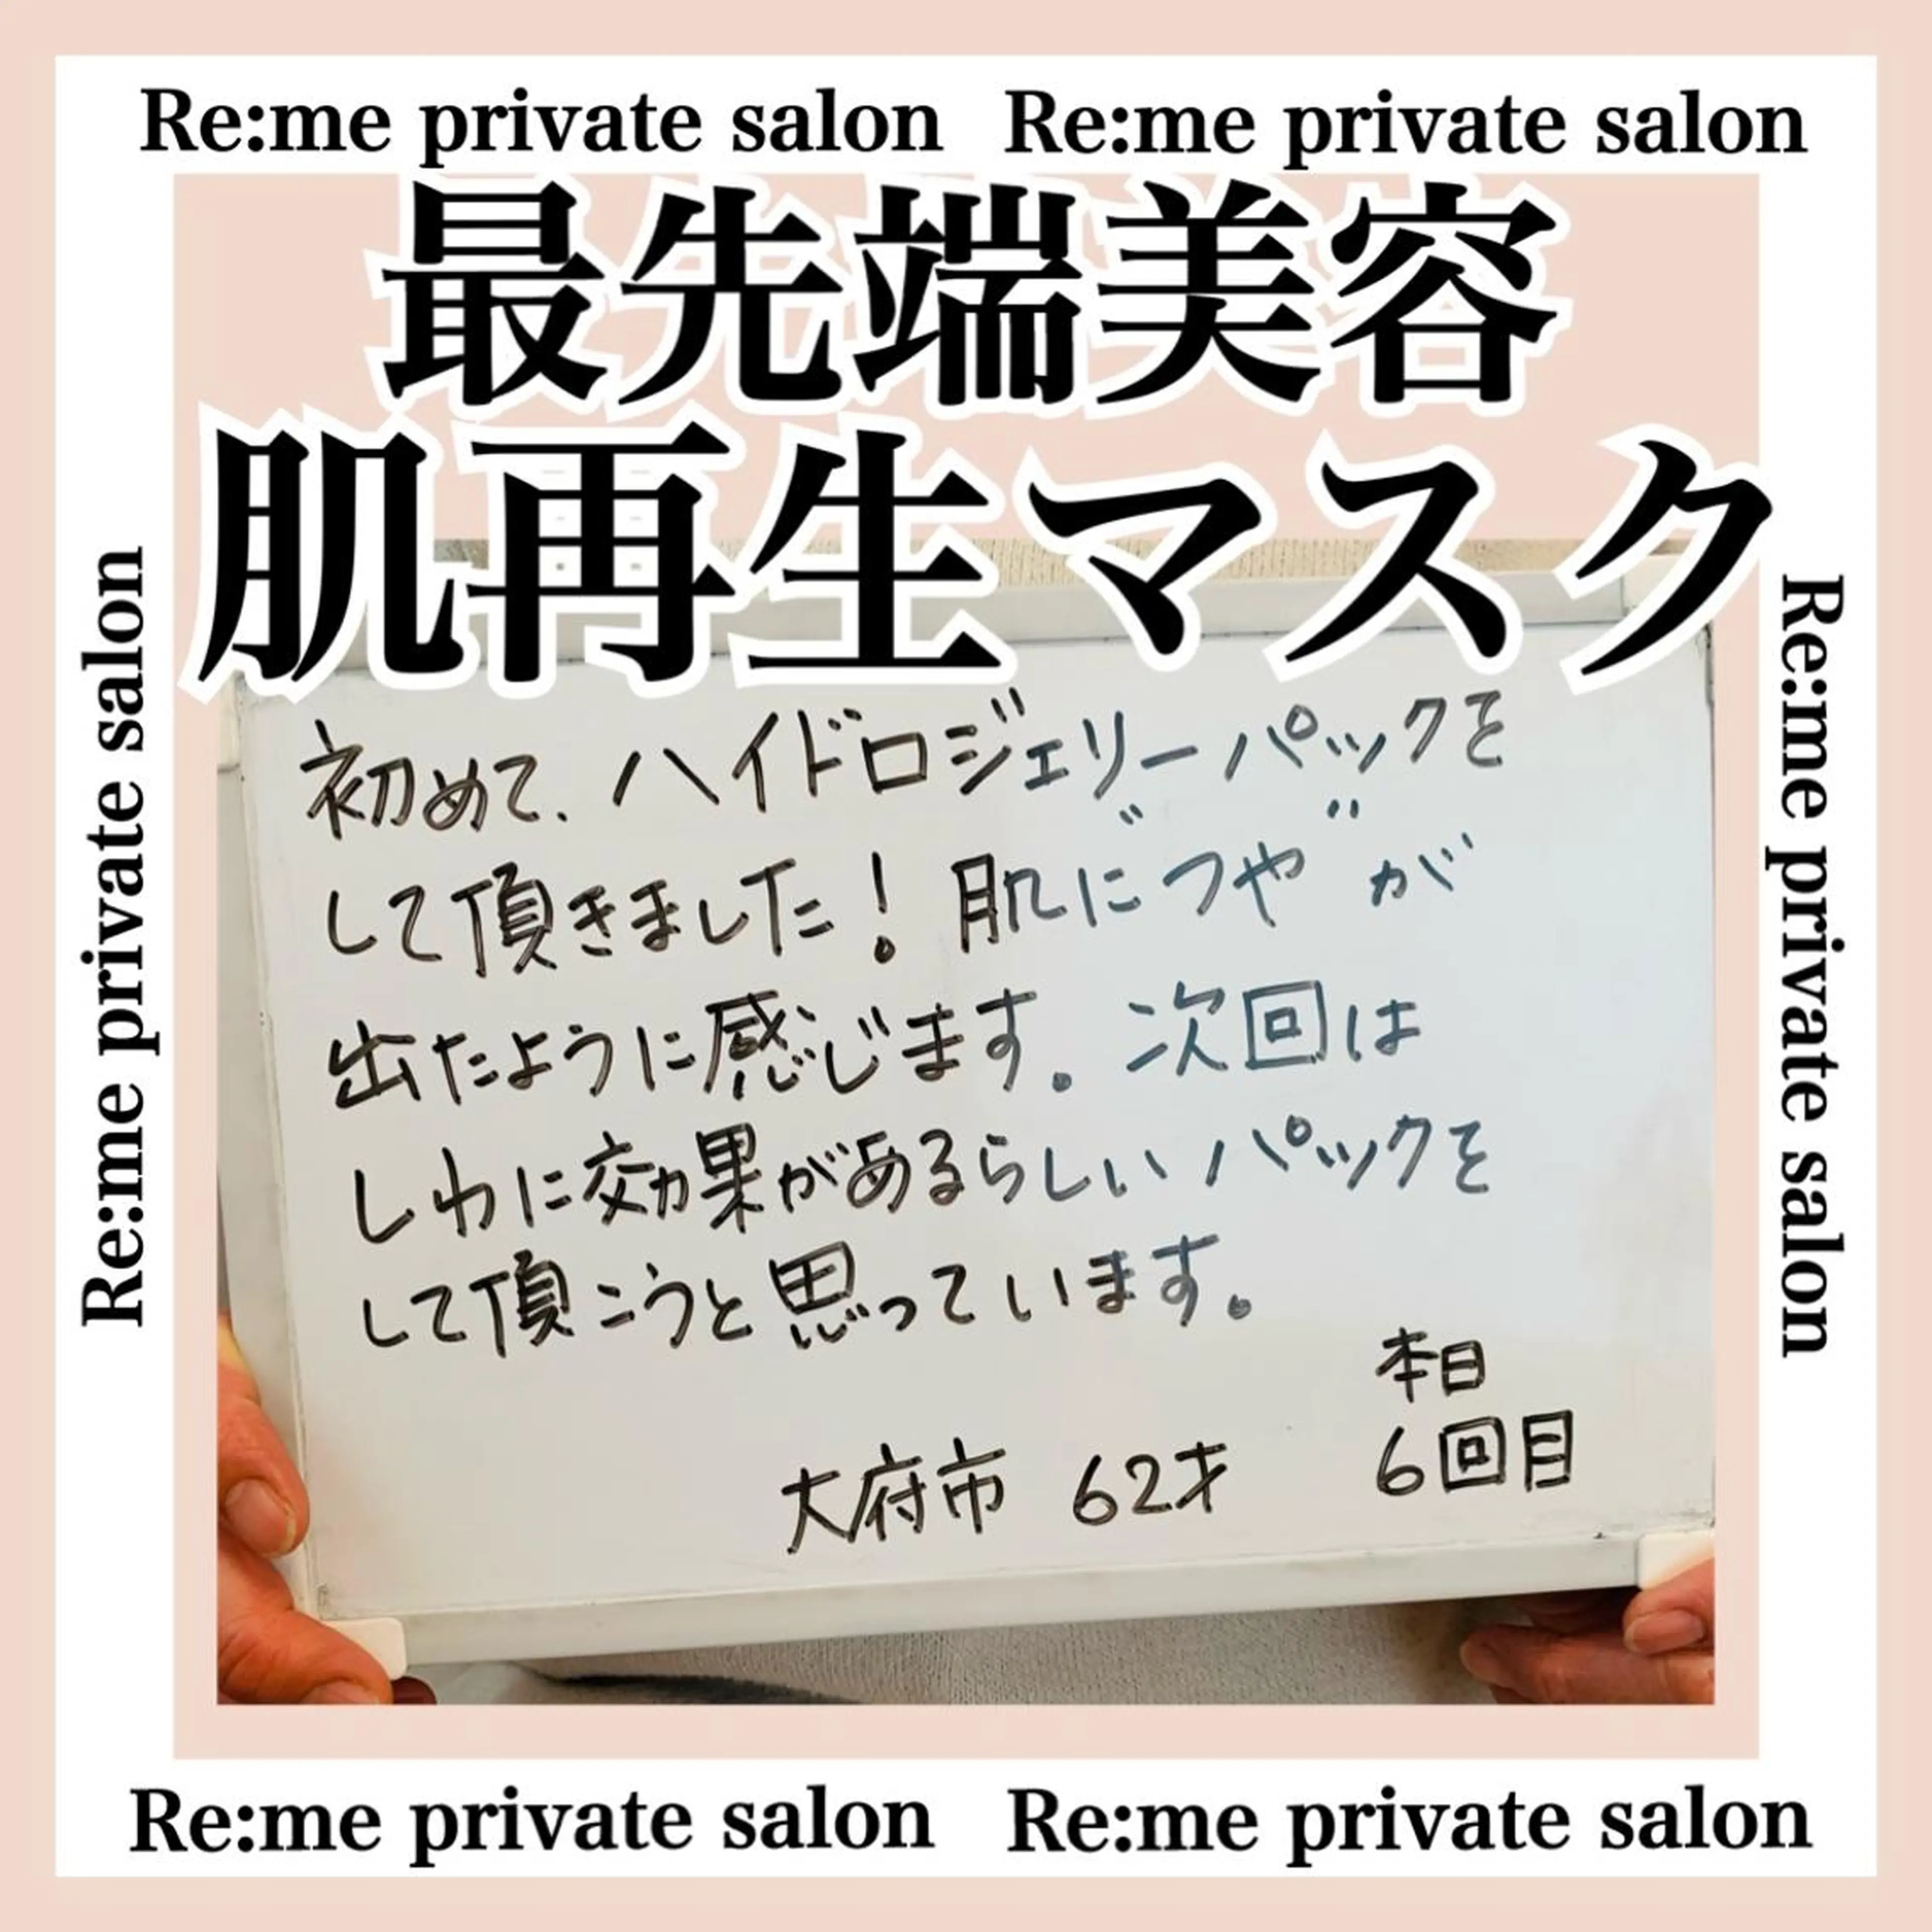 Re:me private salon Re:me private salon
最先端美容
肌再生マスク
Re:me private salon
Re:me private salon
初めて、ハイドロジェリーパックを
して頂きました！肌に〝つや〟が
出たように感じます。次回は
しわに効果があるらしいパックを
して頂こうと思っています。
本日
大府市 62才 6回目
Re:me private salon Re:me private salon